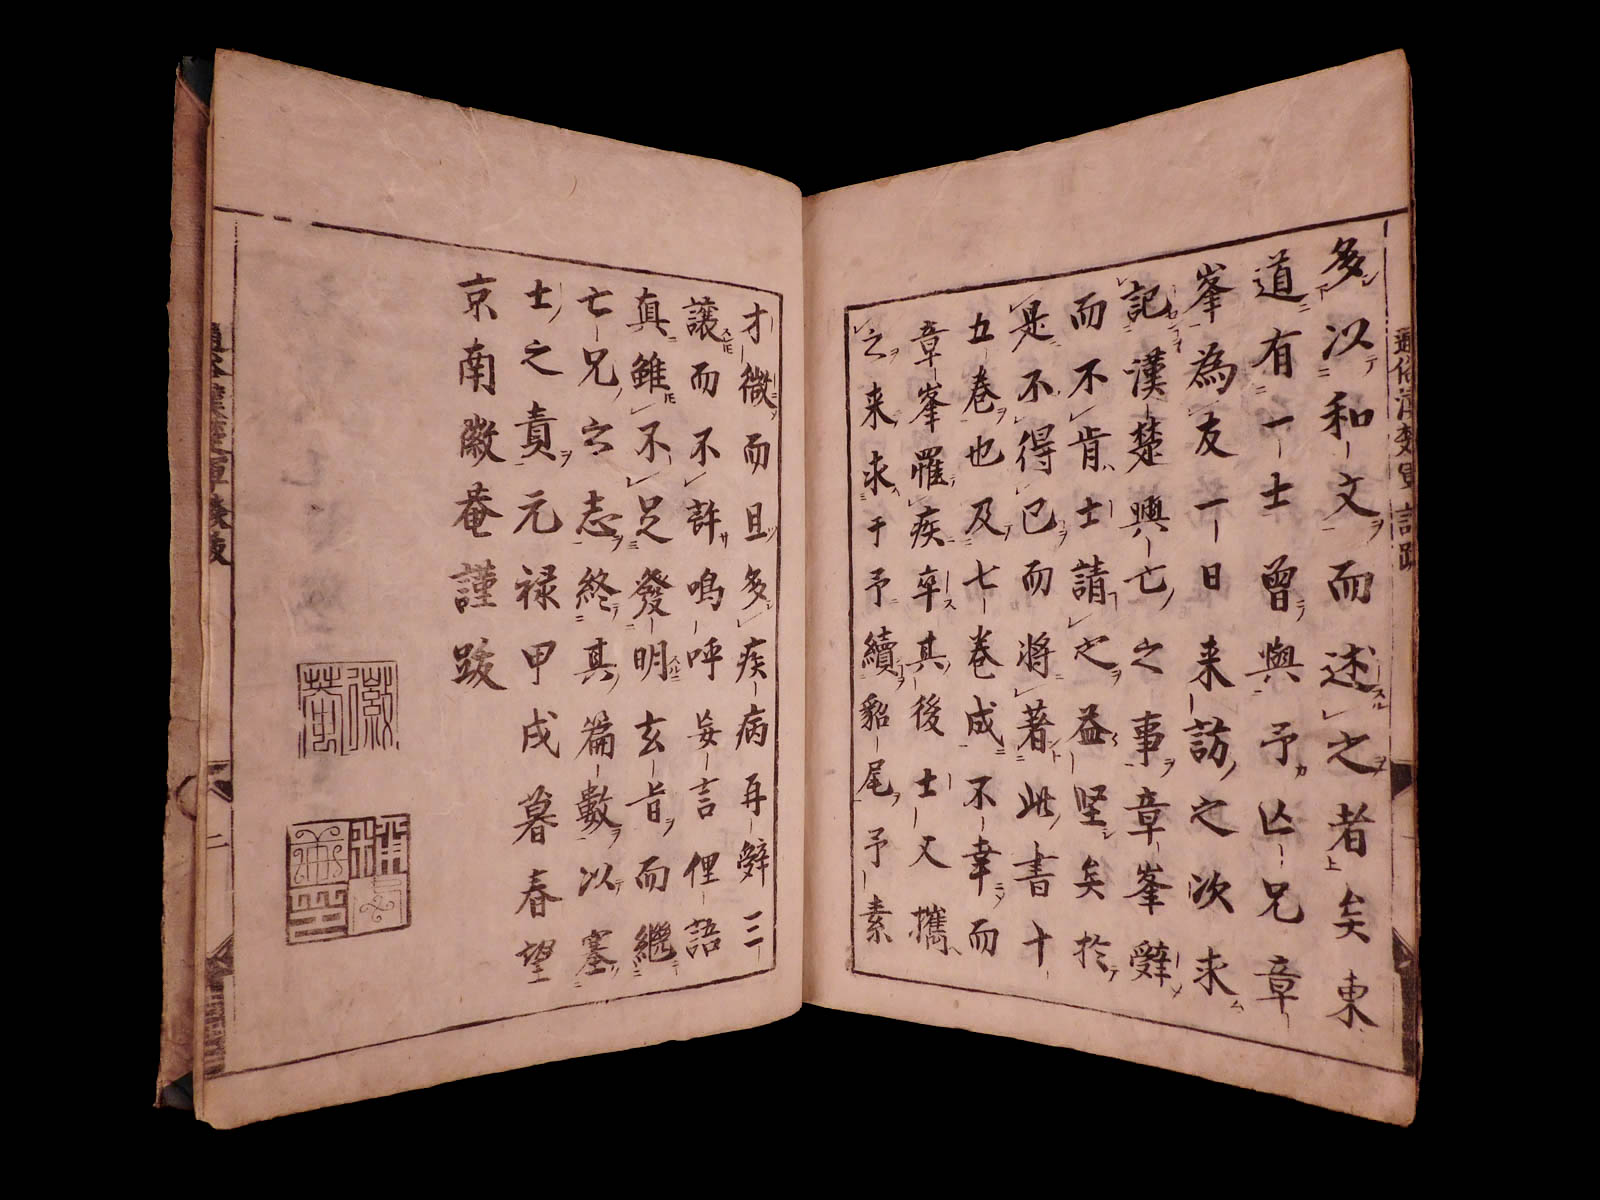 多以和文而述之者矣東
道有一士曽與予亡兄章
峯為友一日来訪之次求
記漢楚興亡之事章峯辤
而不肯士請之益坚矣於
是不得已而将著此書十
五巻也及七巻成不幸而
章峯罹疾卒其後士又攜
之来求于予續貂尾予素
才微而且多疾病再辤三
譲而不許鳴呼妄言俚語
真雖不足發明玄旨而繼
亡兄之志終其篇數以塞
士之責元禄甲戌暮春望
京南徽菴謹跋
徽菴
通俗漢楚軍談跋
通俗漢楚軍談跋
二